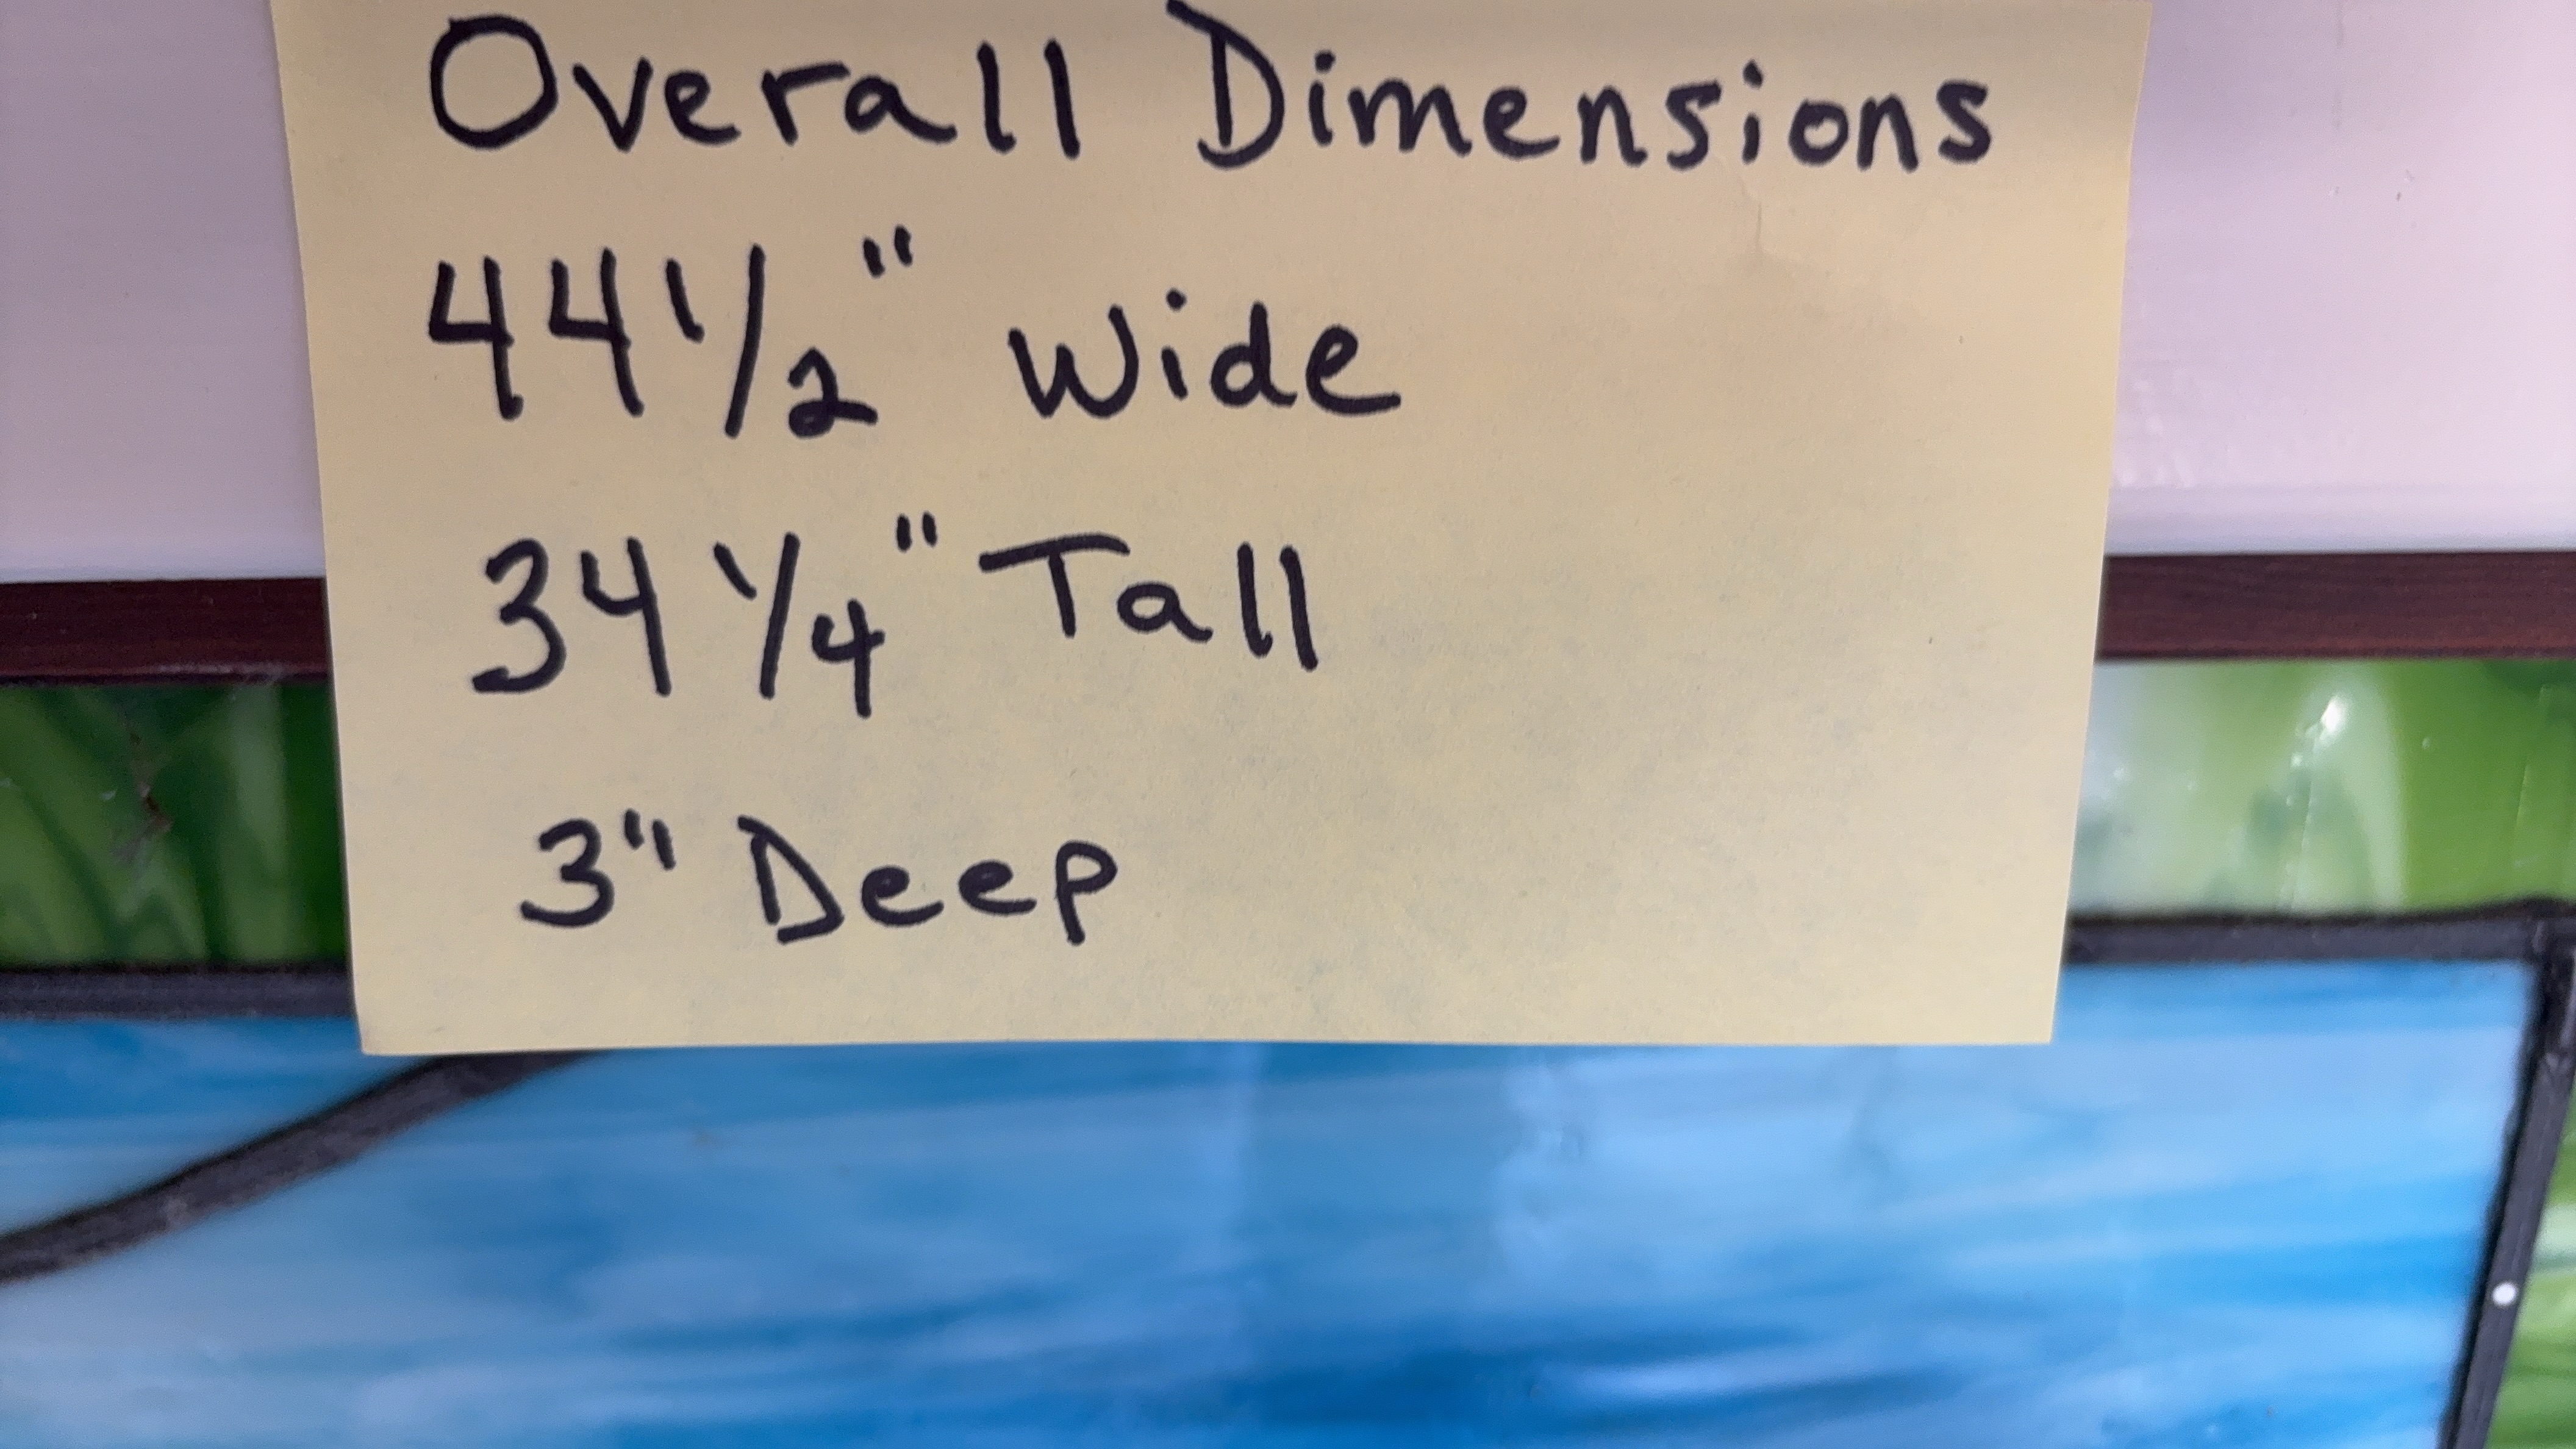 Overall Dimensions
44 1/2" Wide
34 1/4" Tall
3" Deep